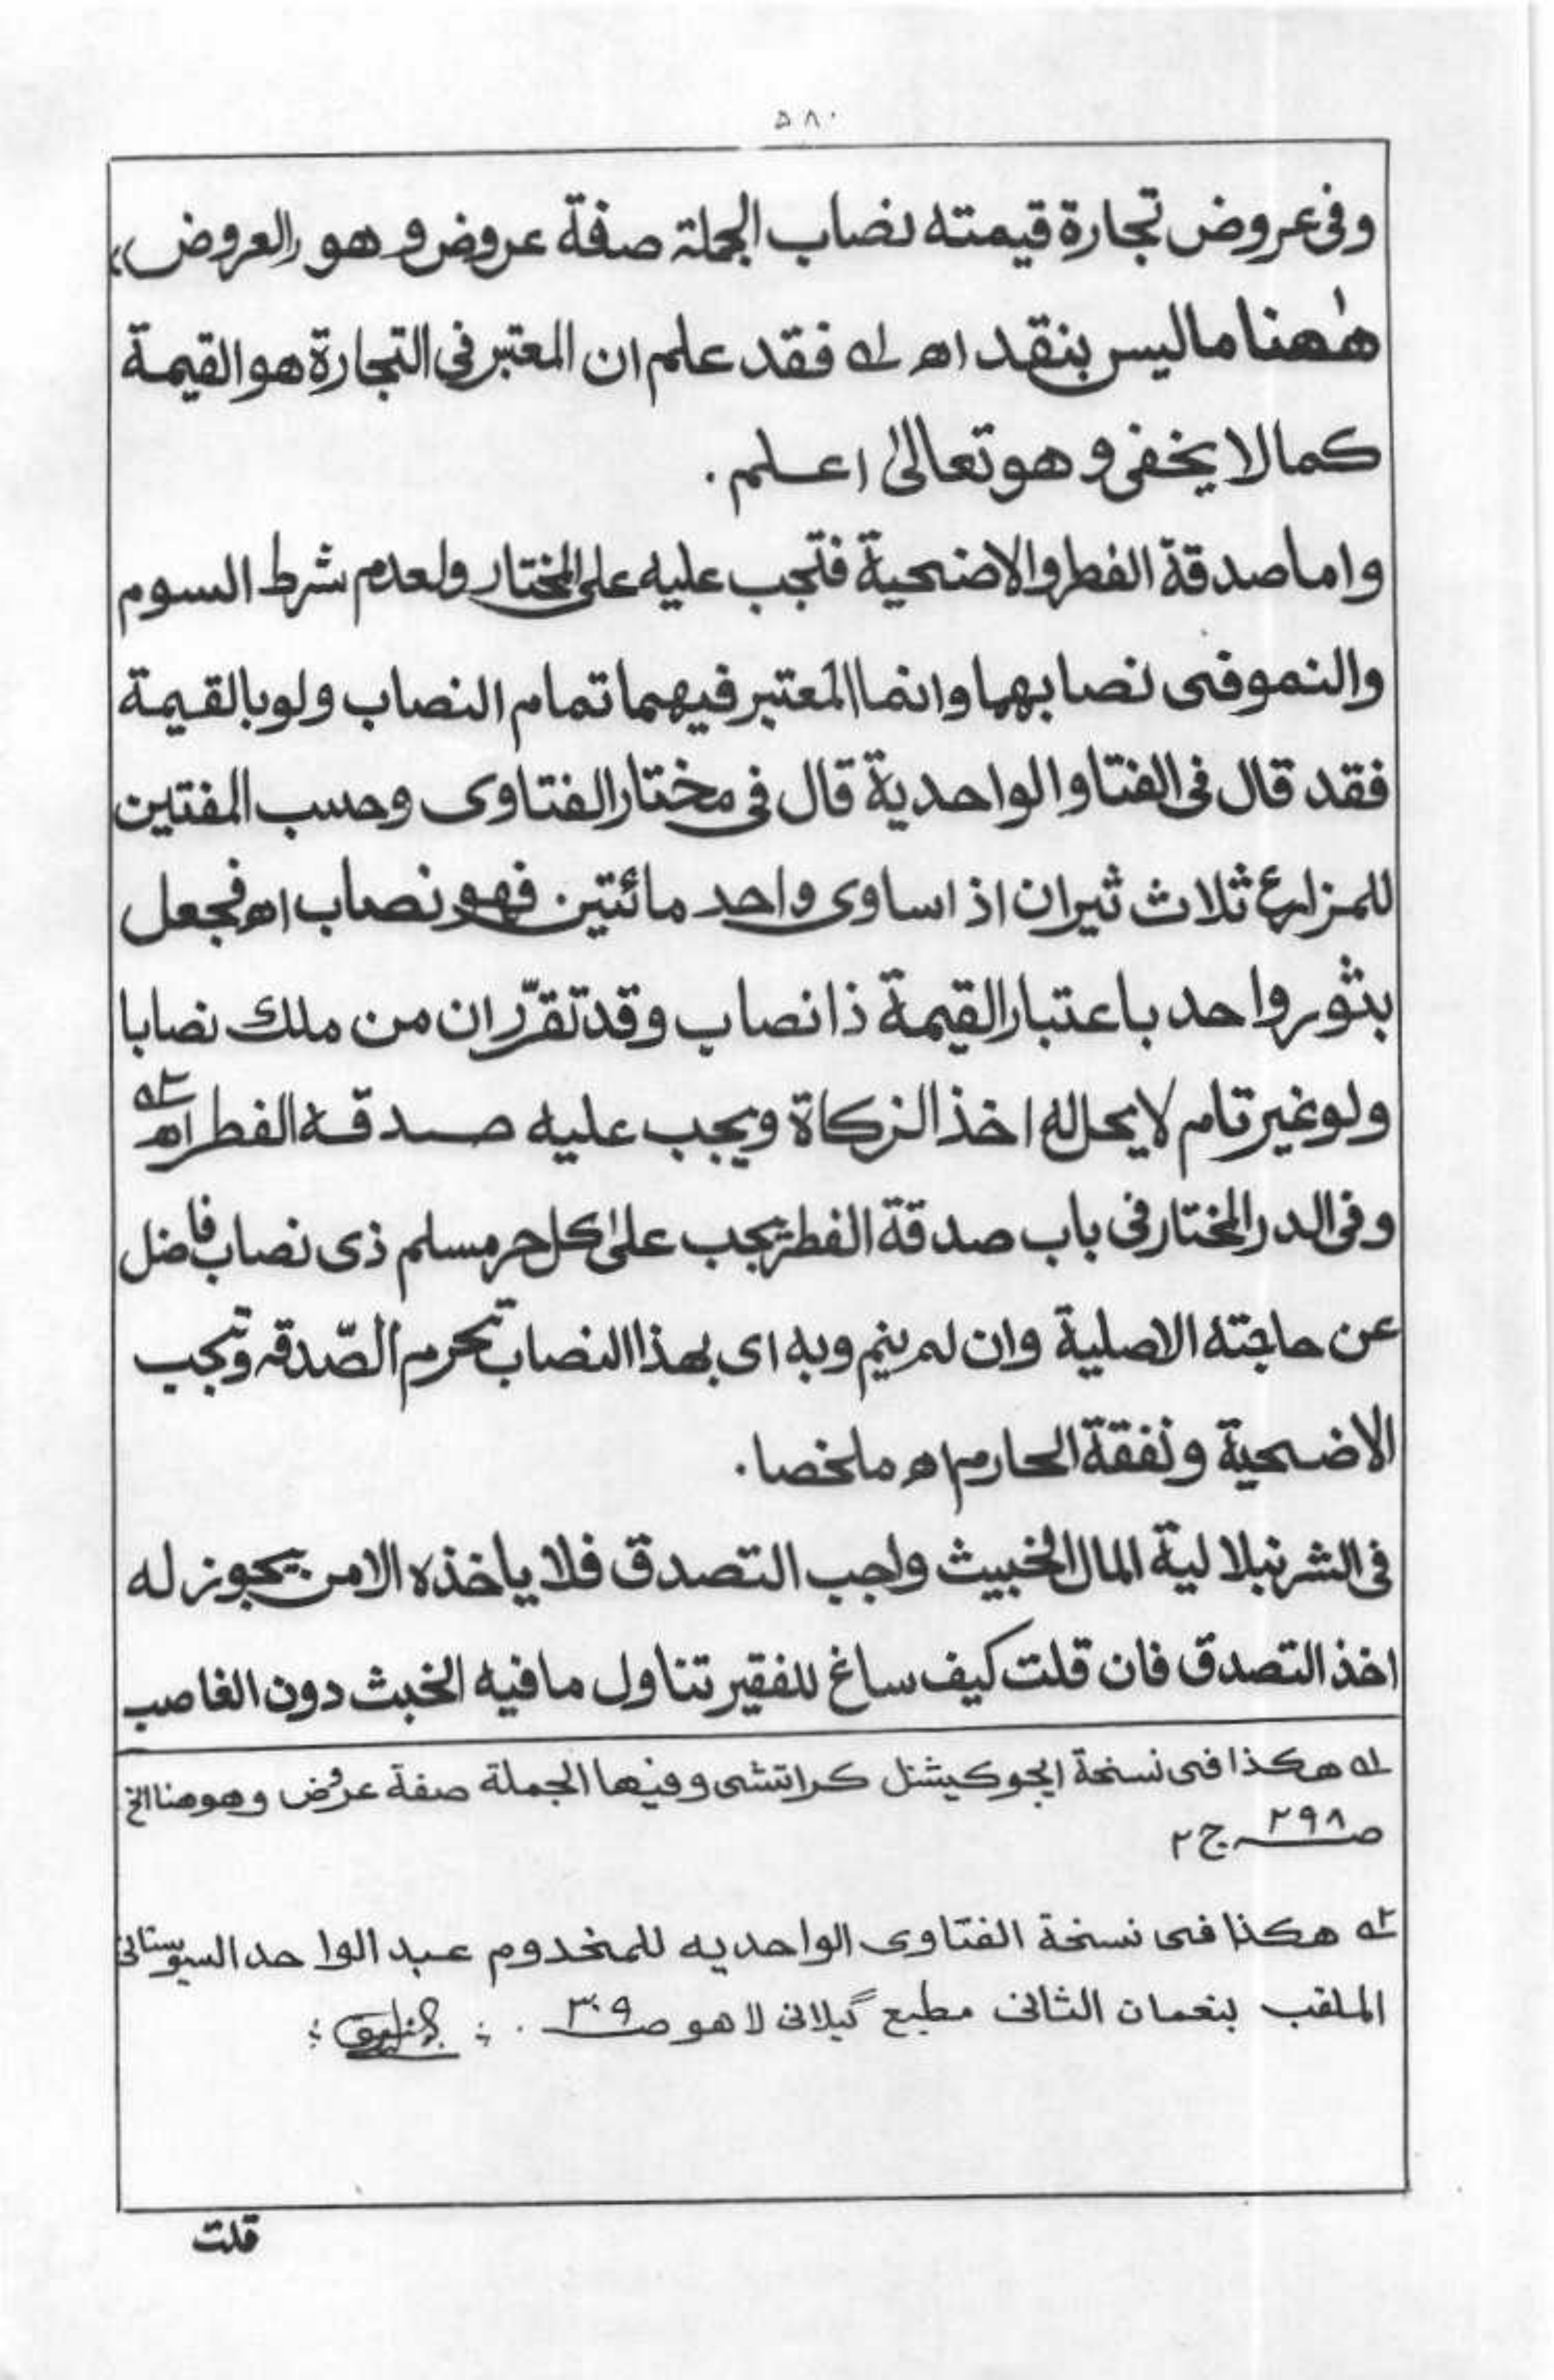 ۵۸۰
وفى عروض تجارة قيمته نصاب الجملة صفة عروض و هو (العروض)
هٰهنا ماليس بنقد اھ لہ فقد علم ان المعتبر فى التجارة هو القيمة
كما لا يخفى و هو تعالىٰ اعلم .
واما صدقة الفطر والاضحية فتجب عليه على المختار ولعدم شرط السوم
والنمو فى نصابهما وانما المعتبر فيهما تمام النصاب ولو بالقيمة
فقد قال فى الفتاو الواحدية قال فى مختار الفتاوى وحسب المفتين
للمزارع ثلاث ثيران اذا ساوى واحد مائتين فهو نصاب اھ فجعل
بثور واحد باعتبار القيمة ذا نصاب وقد تقرّر ان من ملك نصابا
ولو غير تام لا يحل له اخذ الزكاة ويجب عليه صدقة الفطر اھ ٢ہ
وفى الدر المختار فى باب صدقة الفطر تجب علىٰ كل حر مسلم ذى نصاب فاضل
عن حاجته الاصلية وان لم ينم وبه اى بهذا النصاب تحرم الصّدقه وتجب
الاضحية و نفقة المحارم اھ ملخصا .
فى الشرنبلالية المال الخبيث واجب التصدق فلا ياخذه الا من يجوز له
اخذ التصدق فان قلت كيف ساغ للفقير تناول مافيه الخبث دون الغاصب
لہ هكذا فى نسخة ايجوكيشنل كراتشى وفيها الجملة صفة عروض وهو هنا الخ
صـ ٢٩٨ ج ٢
٢ہ هكذا فى نسخة الفتاوى الواحديه للمخدوم عبد الواحد السيوستانى
الملقب بنعمان الثانى مطبع گيلانى لاهو صـ ٣٠٩ .
قلت